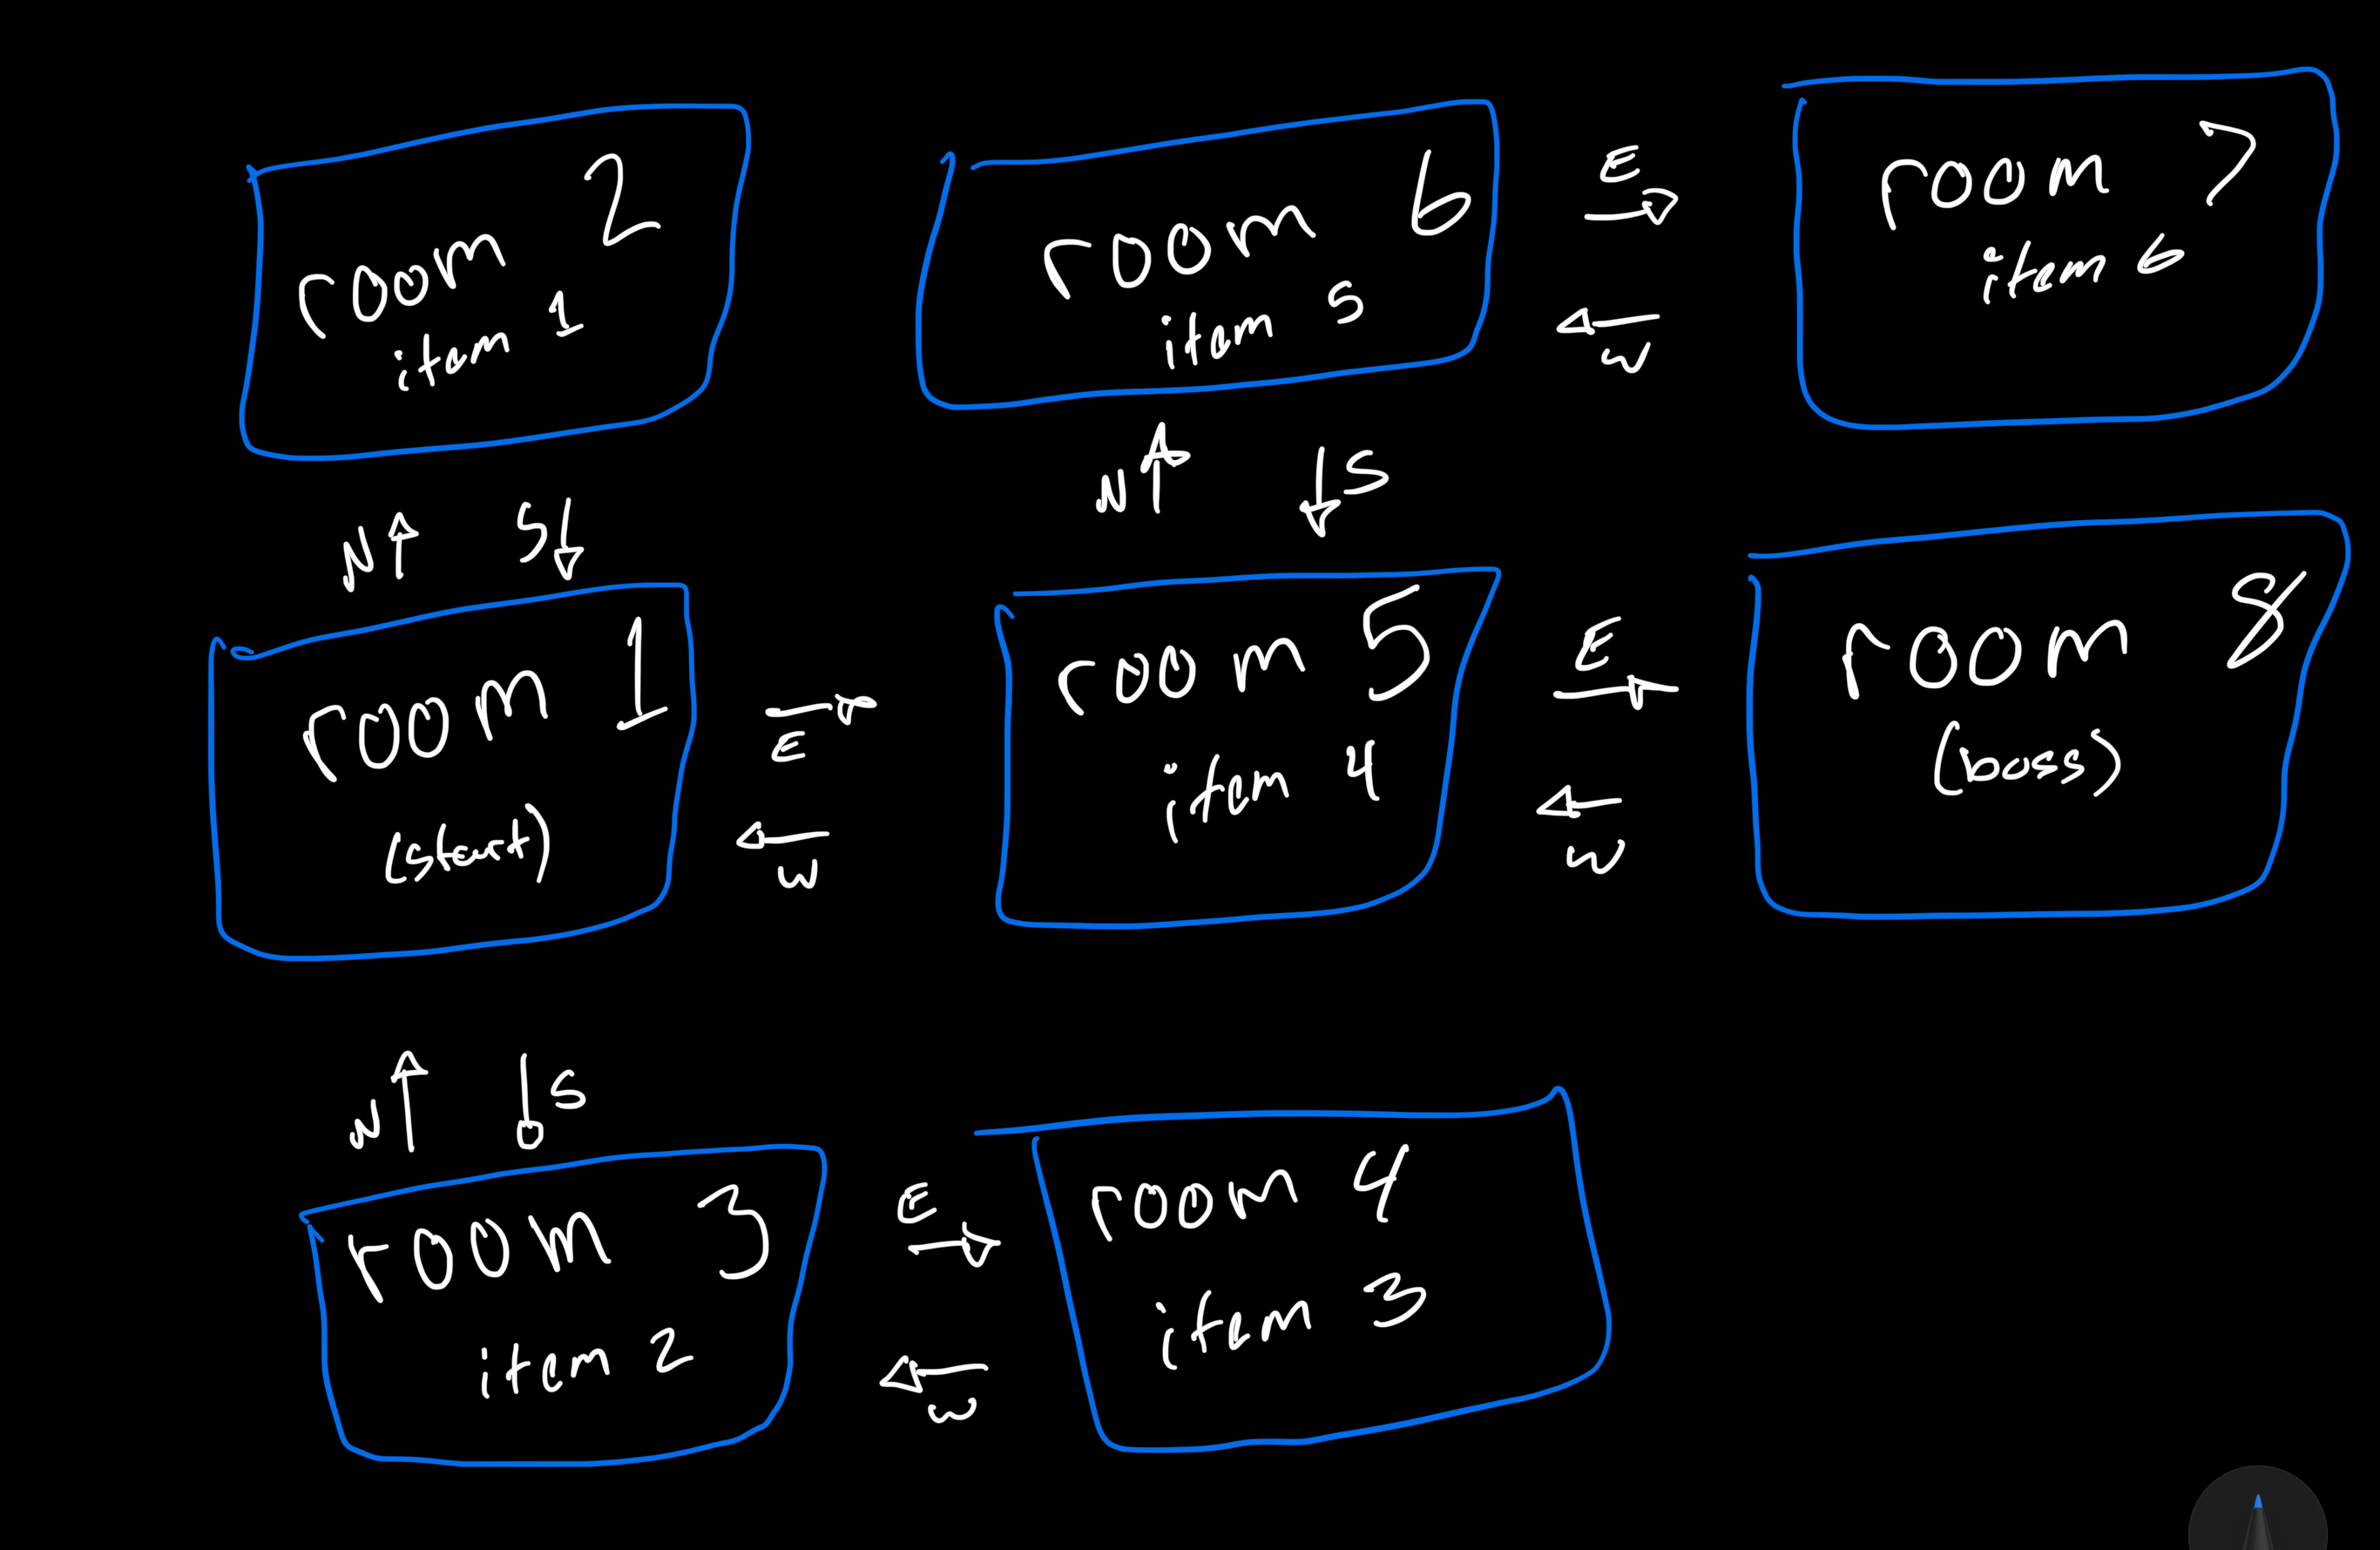 room 2
item 1
room 6
item 5
E
W
room 7
item 6
N
S
N
S
room 1
(start)
E
W
room 5
item 4
E
W
room 8
(boss)
N
S
room 3
item 2
E
W
room 4
item 3